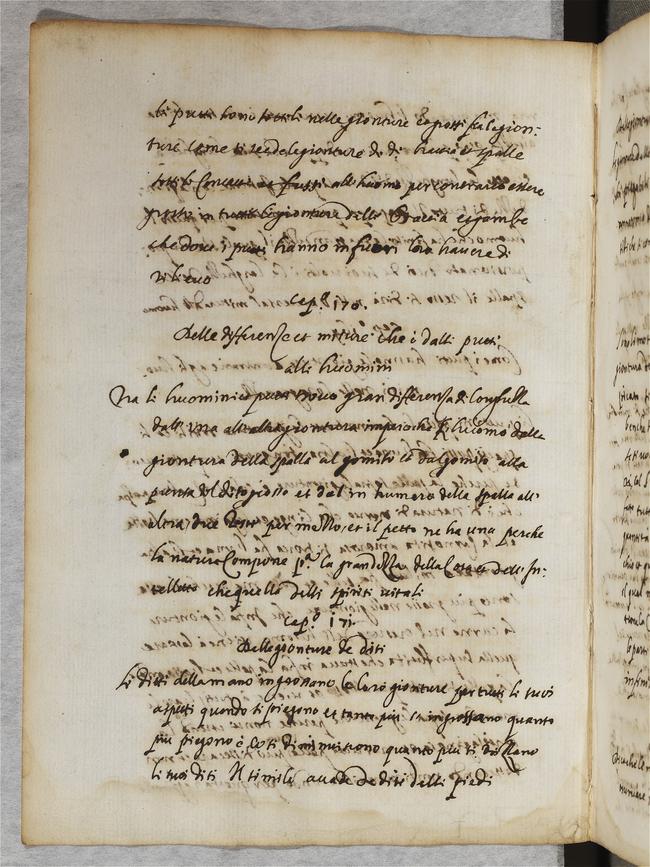 li putti sono sottili nelle gionture e grossi fra le gion:
ture come si vede le gionture de di: braccia et spalle
sottili concave
in tutte le gionture delle Braccia e gambe
che dove i putti hanno in fuori loro havere di
rilievo
Cap.º 170.
Delle differenze et misure che è dalli putti
alli huomini
Tra li huomini e putti trovo gran differenza di longhezza
dall' una all altra giontura impero che l'huomo dalla
giontura della spalla al gomito e dal gomito alla
punta del dito grosso et dal un humero della spalla all'
altra due teste per mezzo, et il petto ne ha una perche
la natura compone p.ª la grandezza della casa de dell' In:
telletto che quella delli spiriti vitali
Cap.º 171.
Delle gionture de diti
Li diti della mano ingrossano le loro gionture per tutti li suoi
aspetti quando si piegono et tanto più s'ingrossano quanto
più piegono e così diminuiscono quanto più si drizzano
li suoi diti Il simile accade de diti delli piedi